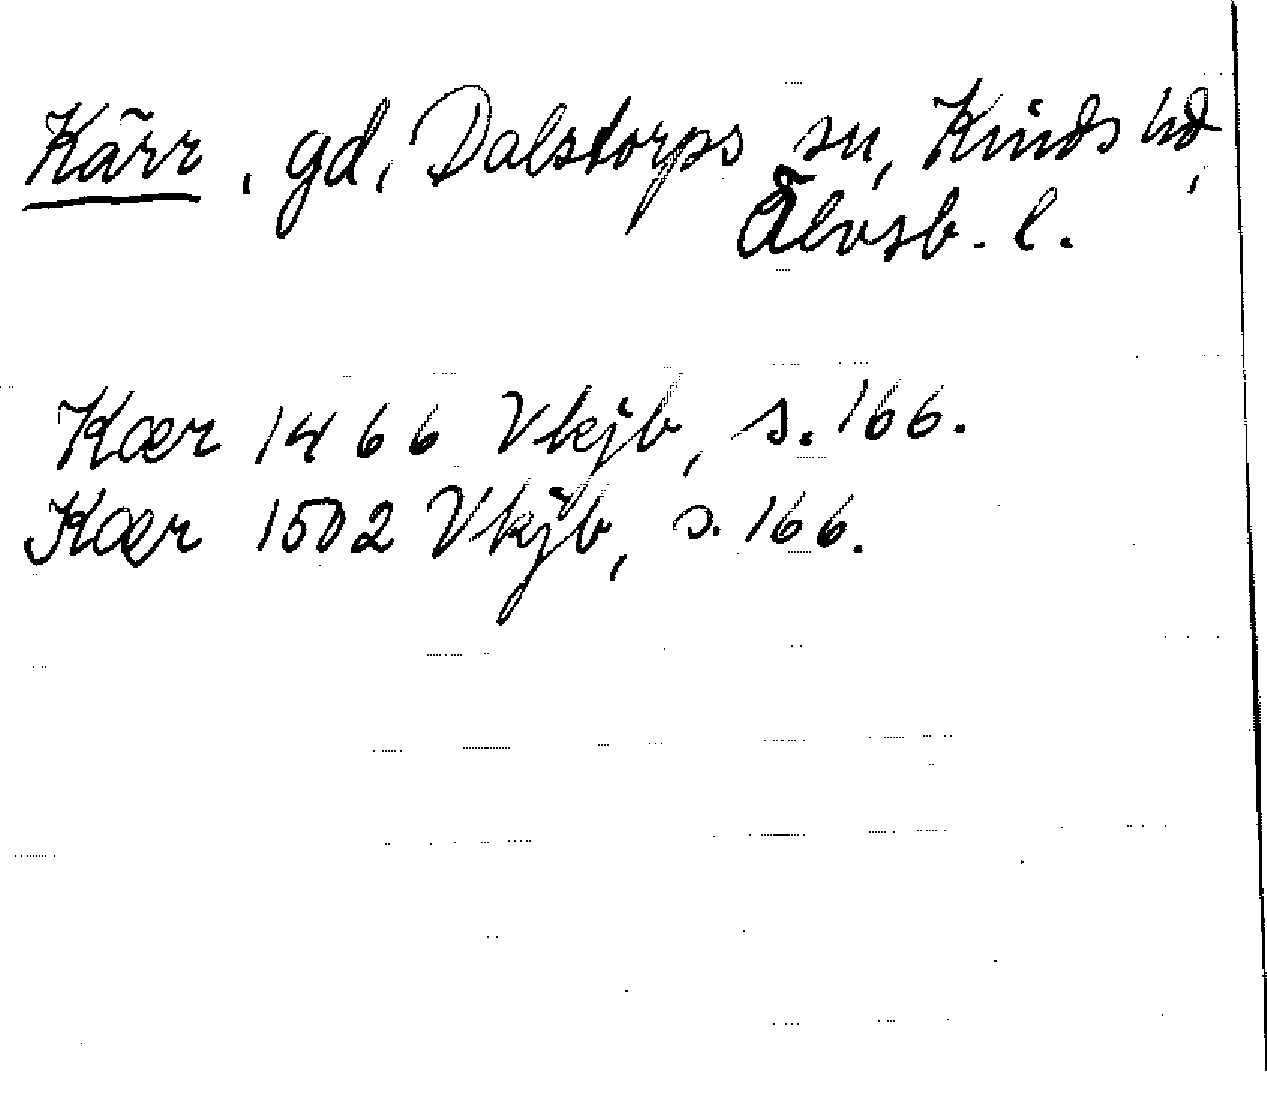 Kärr, gd, Dalstorps sn, Kinds hd,
Älvsb. l.
Kær 1466 Vkjb, s. 166.
Kær 1502 Vkjb, s. 166.